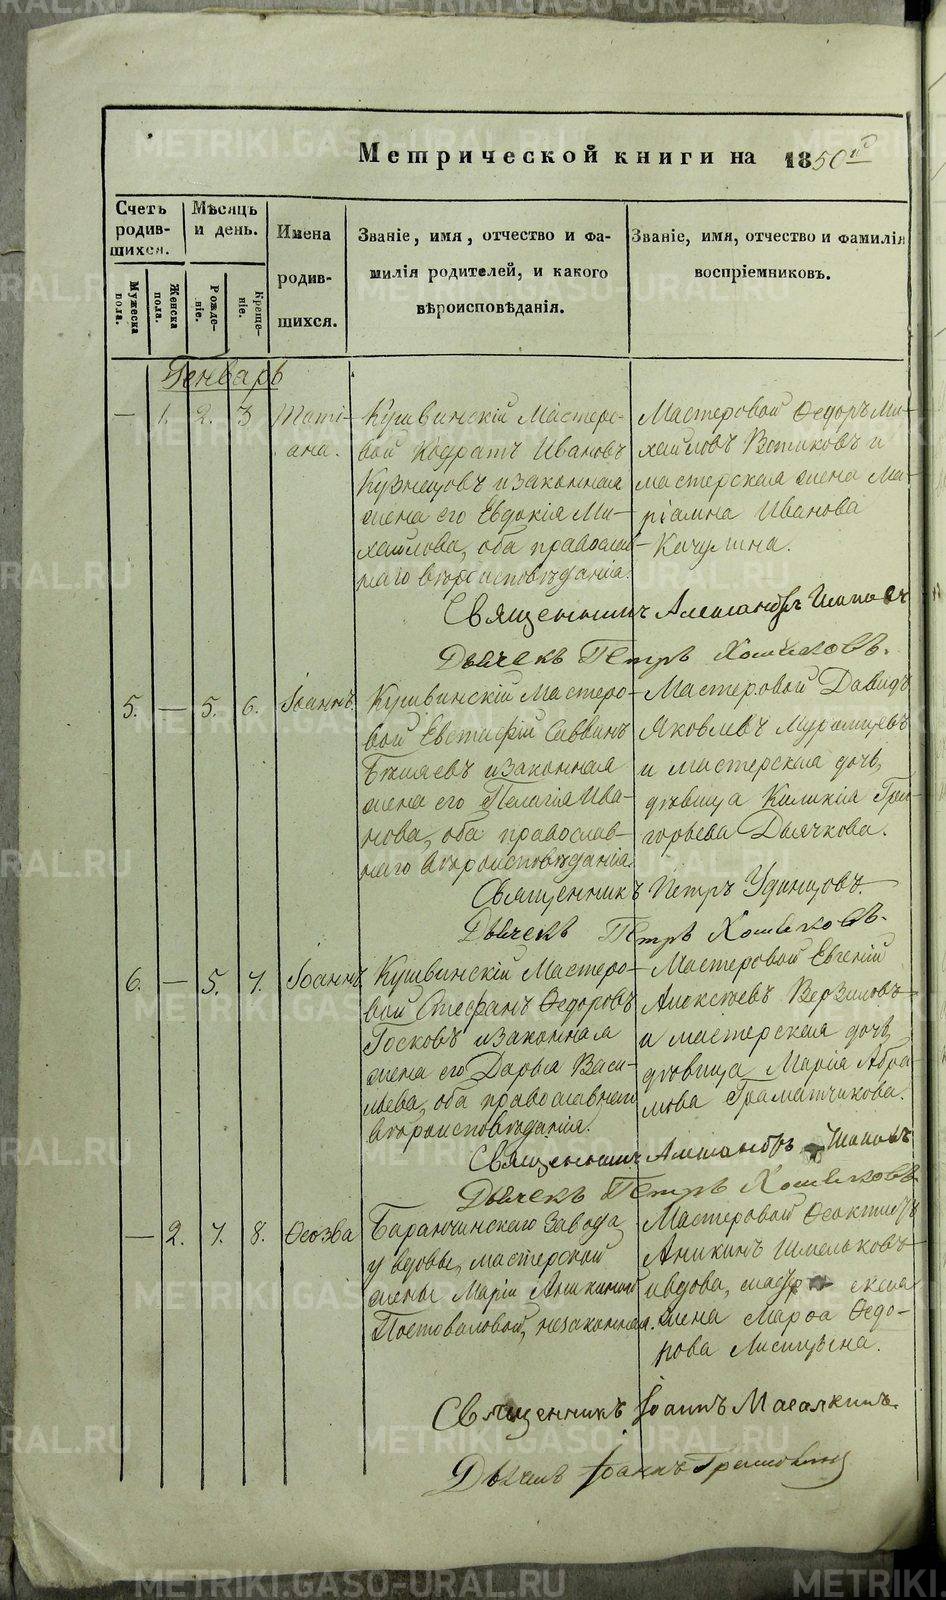 Метрической книги на 1850й
Счетъ родившихся.
Мѣсяцъ и день.
Имена родившихся.
Званіе, имя, отчество и фамилія родителей, и какого вѣроисповѣданія.
Званіе, имя, отчество и фамилія воспріемниковъ.
Мужеска пола.
Женска пола.
Рожденіе.
Крещеніе.
Генварь
— 1. 2. 3 Татіана.
Кушвинскій Мастеро-
вой Кодратъ Ивановъ
Кузнецовъ и законная
жена его Евдокія Ми-
хайлова, оба православ-
наго вѣроисповѣданія.
Мастеровой Ѳедоръ Ми-
хайловъ Вотяковъ и
мастерская жена Ма-
ріамна Иванова
Качулина.
Священникъ Александръ
Дьячекъ Петръ Хомяковъ.
5. — 5. 6. Іоаннъ.
Кушвинскій Мастеро-
вой Евстафій Саввинъ
и законная
жена его Пелагія Ива-
нова, оба православ-
наго вѣроисповѣданія
Мастеровой Давидъ
Яковлевъ Мурзинцевъ
и мастерская дочь,
дѣвица Киликія Гри-
горьева Дьячкова.
Священникъ Петръ Удинцовъ.
Дьячекъ Петръ Хомяковъ.
6. — 5. 7. Іоаннъ
Кушвинскій Мастеро-
вой Стефанъ Ѳедоровъ
Госковъ и законная
жена его Дарья Васи-
льева, оба православнаго
вѣроисповѣданія.
Мастеровой Евгеній
Алексѣевъ Верзиловъ
и мастерская дочь,
дѣвица Марія Абра-
мова Граматчикова.
Священникъ Александръ
Дьячекъ Петръ Хомяковъ
— 2. 7. 8. Ѳеозва
Баранчинскаго завода
у вдовы, мастерской
жены Маріи Аникиной
Постоваловой, незаконная.
Мастеровой Ѳеоктистъ
Аникинъ Шмельковъ
и вдова, мастерская
жена Марѳа Ѳедо-
рова Лисицына.
Священникъ Іоаннъ
Дьячекъ Іоаннъ
METRIKI.GASO-URAL.RU